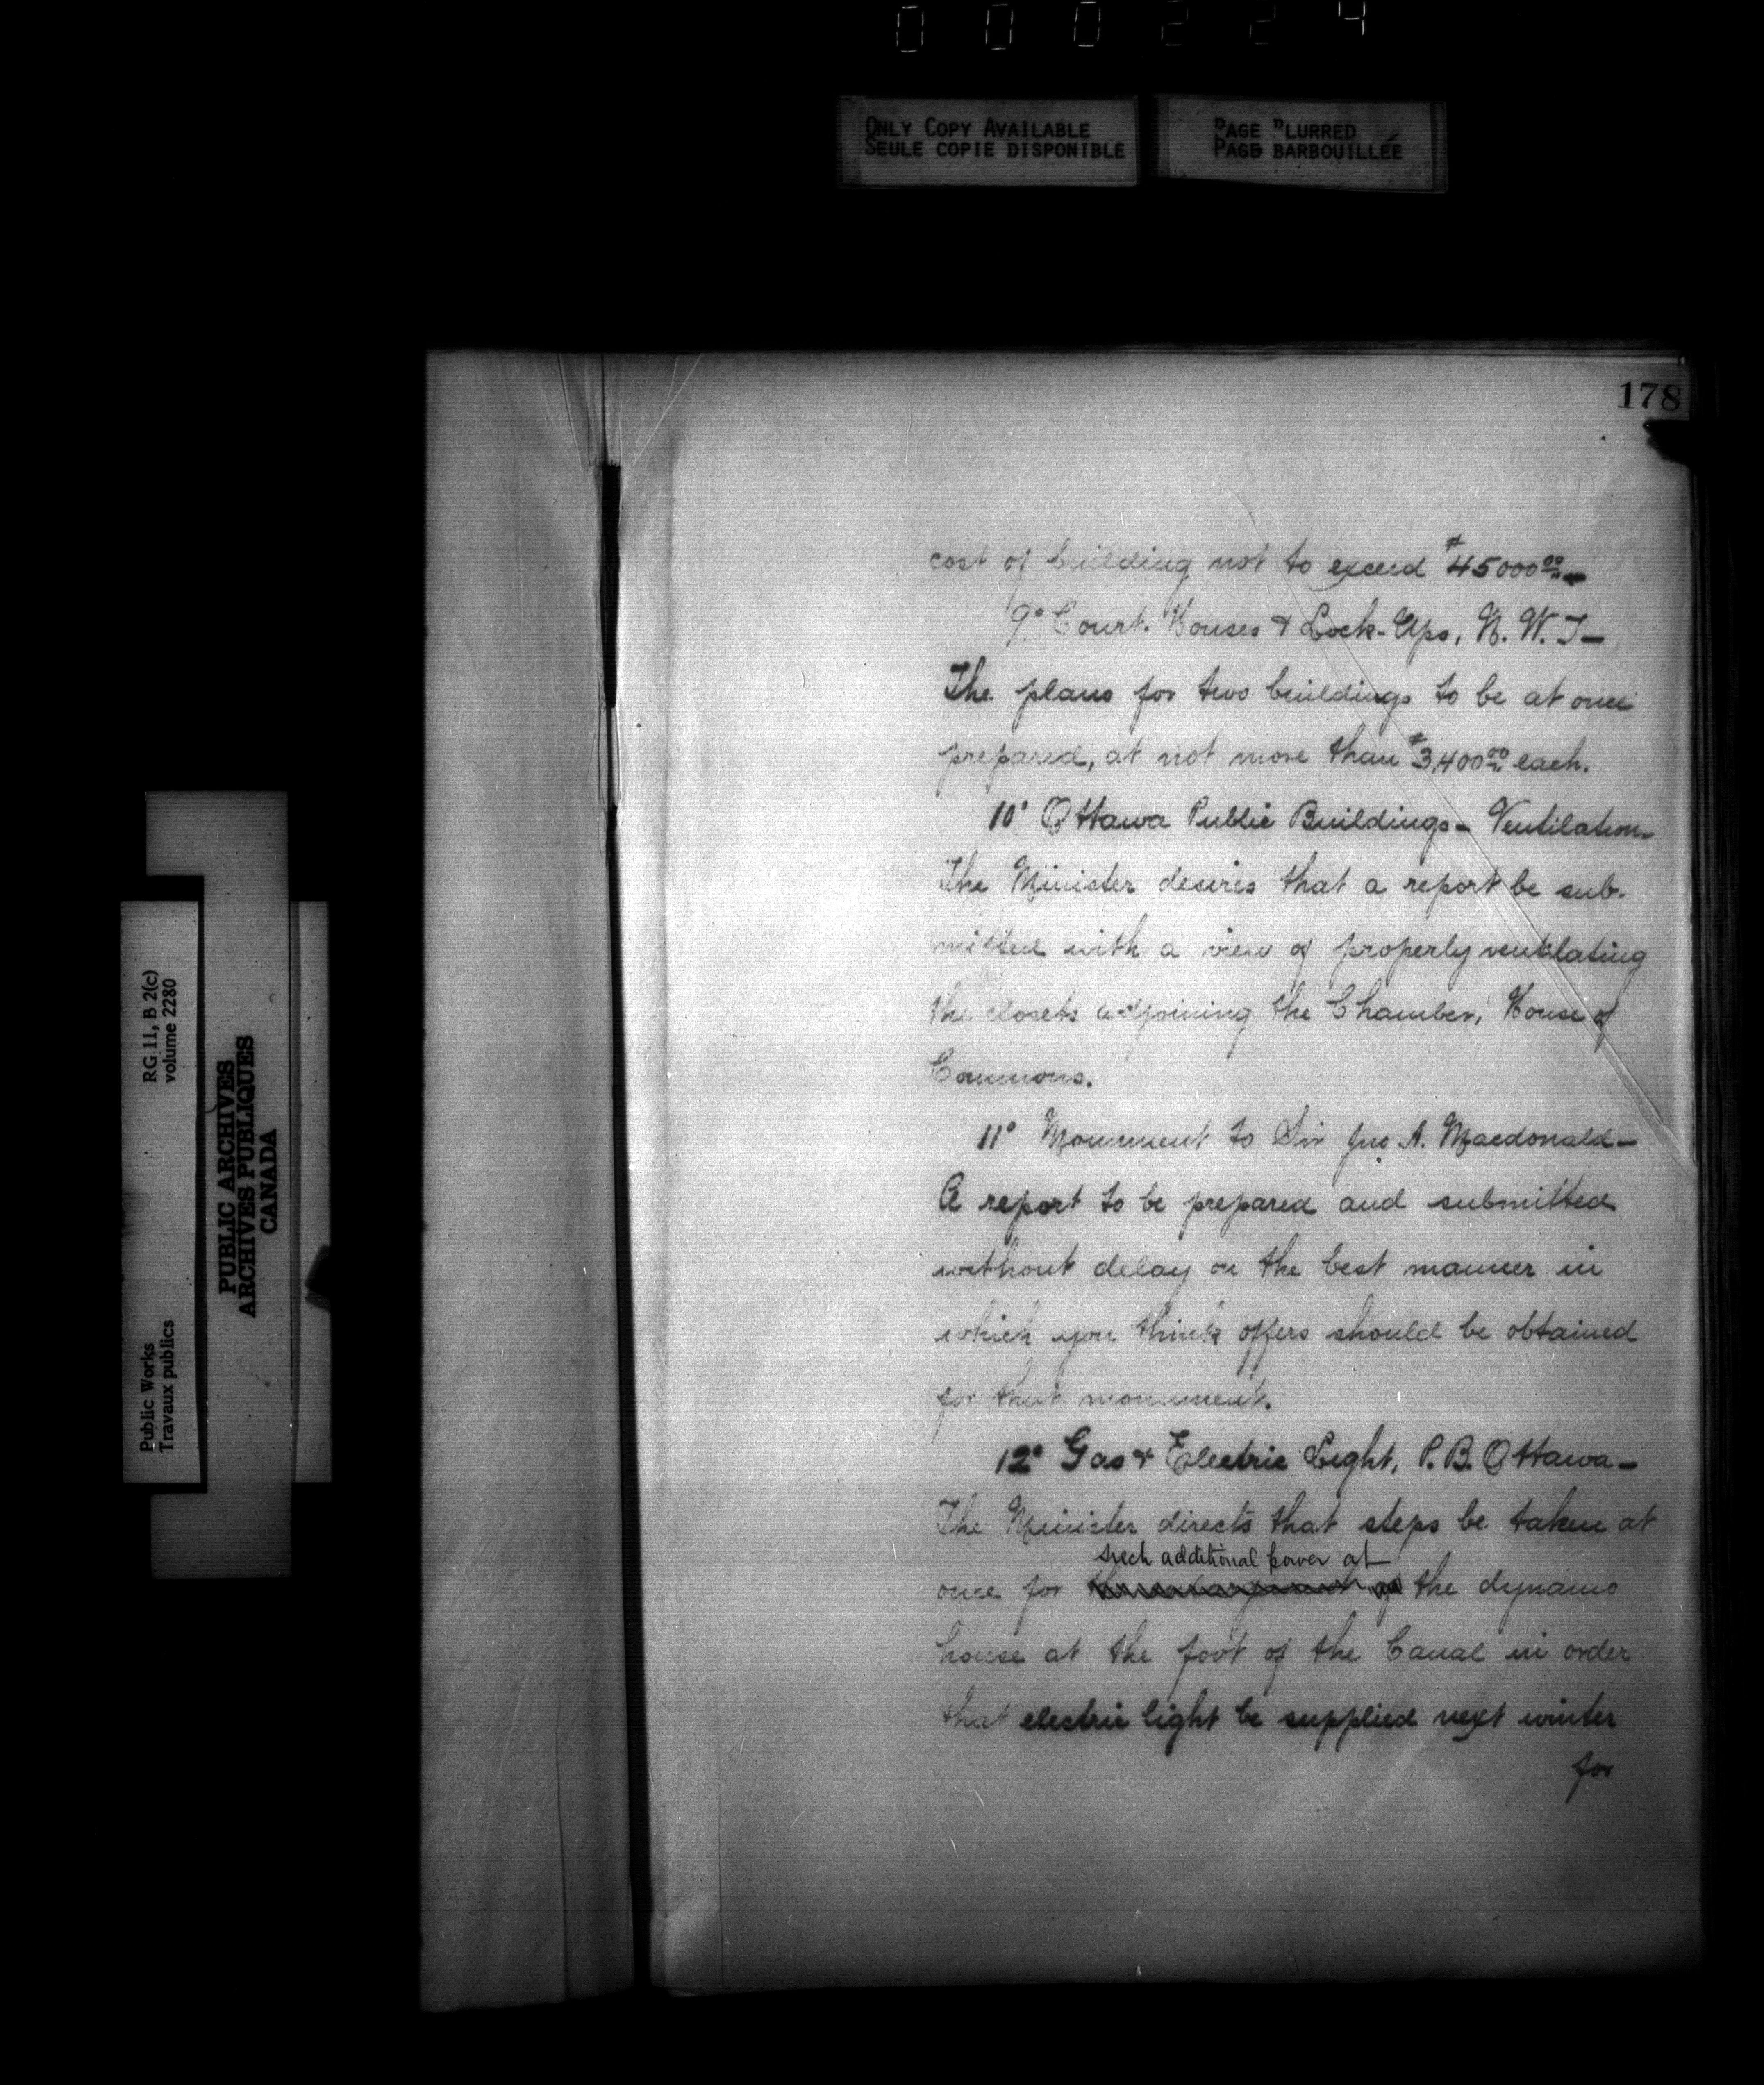 000224
ONLY COPY AVAILABLE
SEULE COPIE DISPONIBLE
PAGE BLURRED
PAGE BARBOUILLÉE
178
cost of building not to exceed $45000.00 —
9° Court Houses & Lock-Ups, N. W. T —
The plans for two buildings to be at once
prepared, at not more than $3,400.00 each.
10° Ottawa Public Buildings — Ventilation —
The Minister desires that a report be sub-
mitted with a view of properly ventilating
the closets adjoining the Chamber, House of
Commons.
11° Monument to Sir Jno A. Macdonald —
A report to be prepared and submitted
without delay on the best manner in
which you think offers should be obtained
for that monument.
12° Gas & Electric Light, P. B. Ottawa —
The Minister directs that steps be taken at
such additional power at
once for the enlargement of the dynamo
house at the foot of the Canal in order
that electric light be supplied next winter
for
RG 11, B 2(c)
volume 2280
Public Works
Travaux publics
PUBLIC ARCHIVES
ARCHIVES PUBLIQUES
CANADA